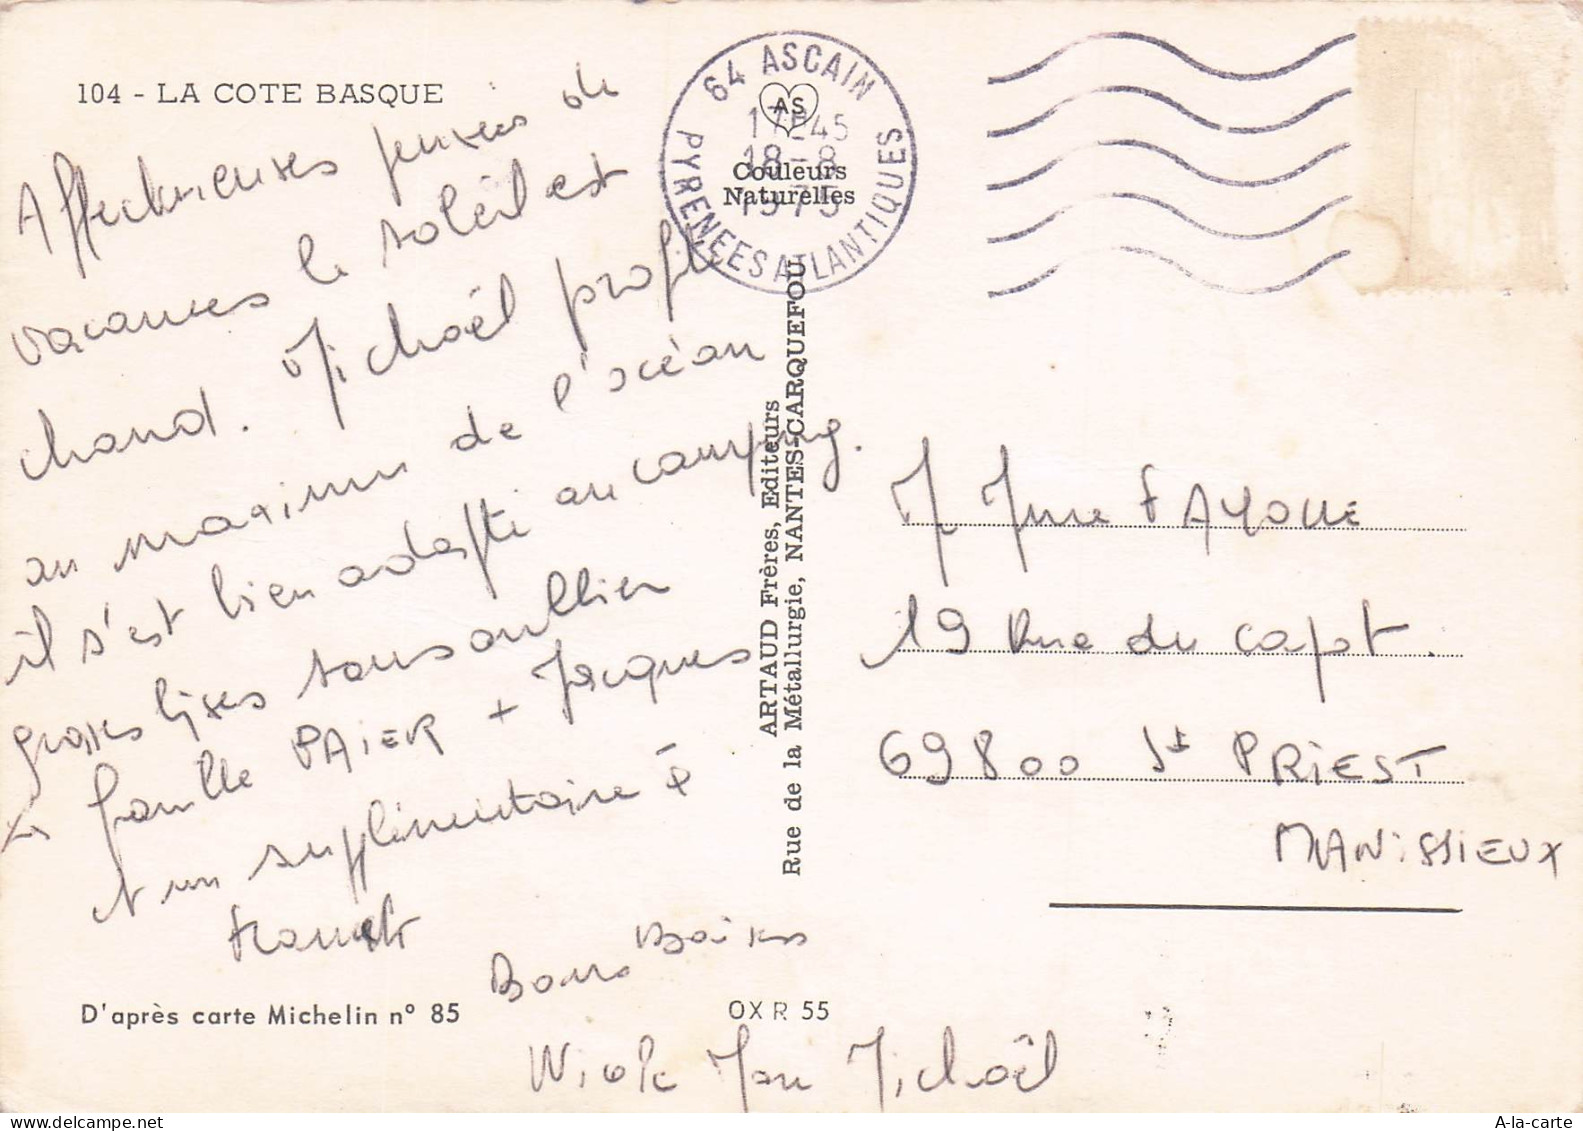 104 - LA COTE BASQUE
Affectueuses pensées de
vacances le soleil est
chaud. Michaël profite
au maximum de l'océan
il s'est bien adapté au camping.
grosses bises sans oublier
la famille PAIER + Jacques
et un supplémentaire à
Franck
Bons Baisers
Nicole Jean Michaël
D'après carte Michelin n° 85
OX R 55
64 ASCAIN
PYRENEES ATLANTIQUES
17H45
18-8
1975
AS
Couleurs
Naturelles
ARTAUD Frères, Editeurs
Rue de la Métallurgie, NANTES-CARQUEFOU
M Mme FAYOLLE
19 Rue du capot.
69800 St PRiEST
MANiSSIEUX
A-la-carte